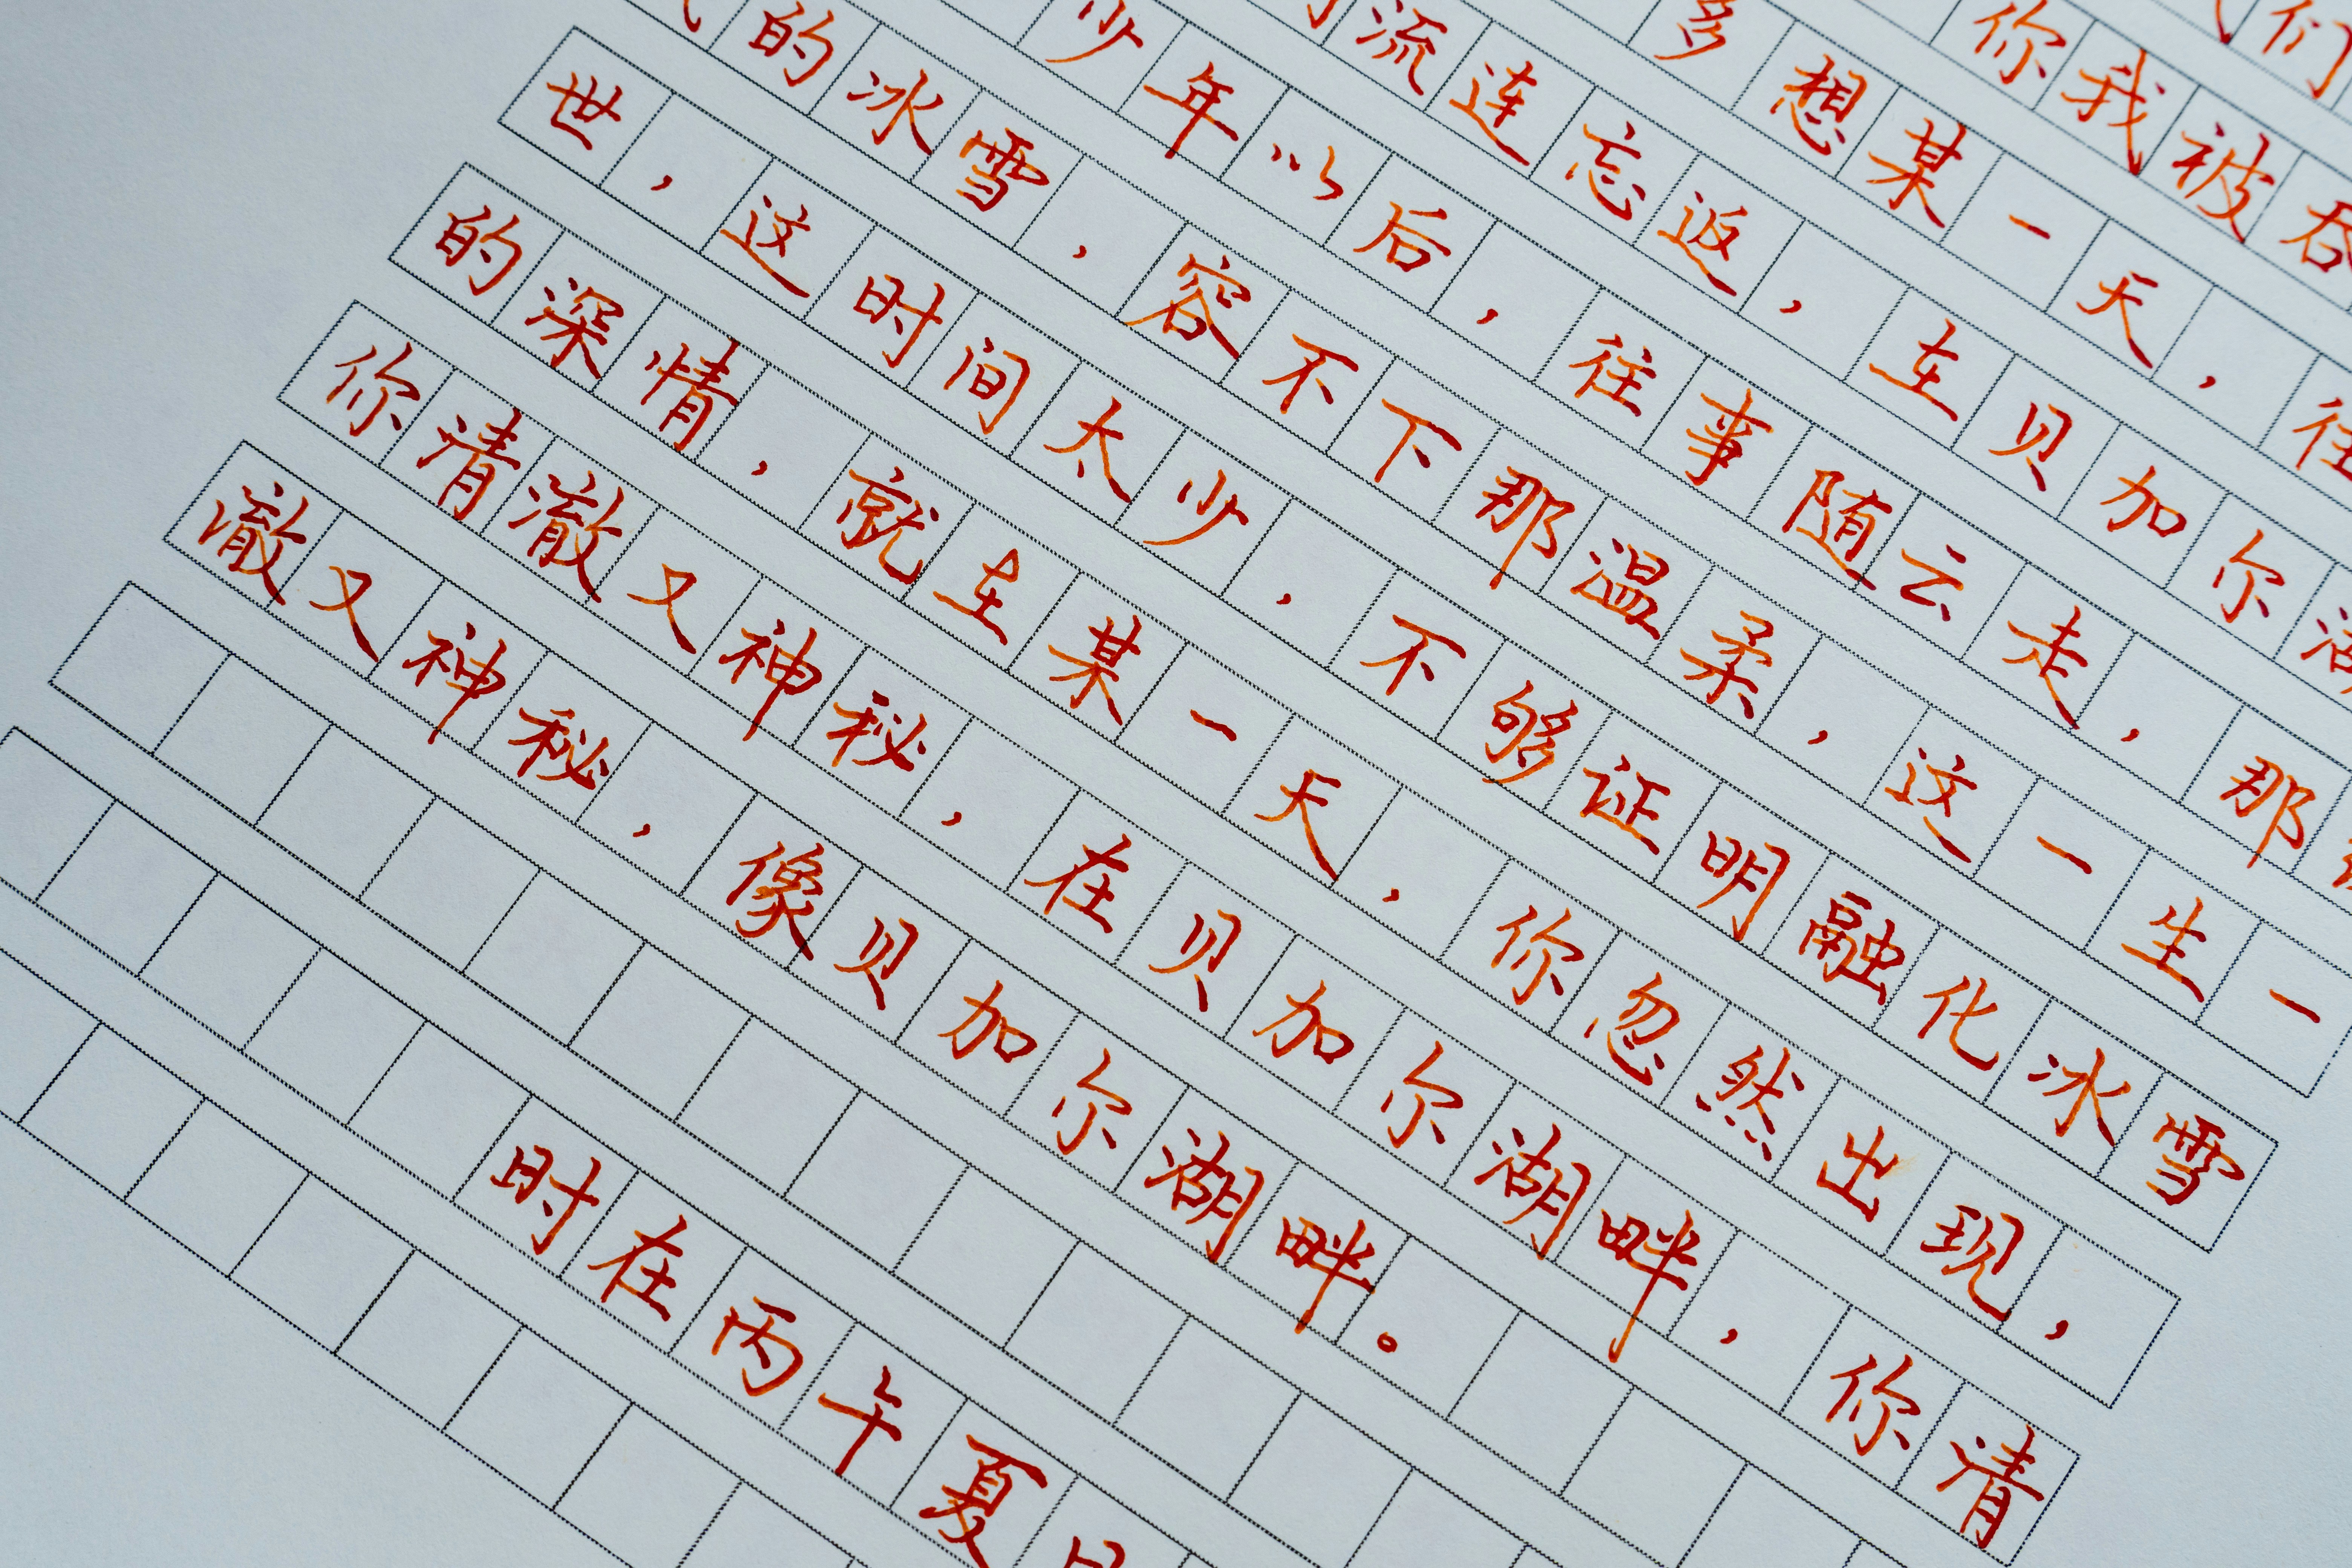 们
你我被吞
多想某一天，往
流连忘返，在贝加尔湖
少年以后，往事随云走，那
的冰雪，容不下那温柔，这一生一
世，这时间太少，不够证明融化冰雪
的深情，就在某一天，你忽然出现，
你清澈又神秘，在贝加尔湖畔，你清
澈又神秘，像贝加尔湖畔。
时在丙午夏